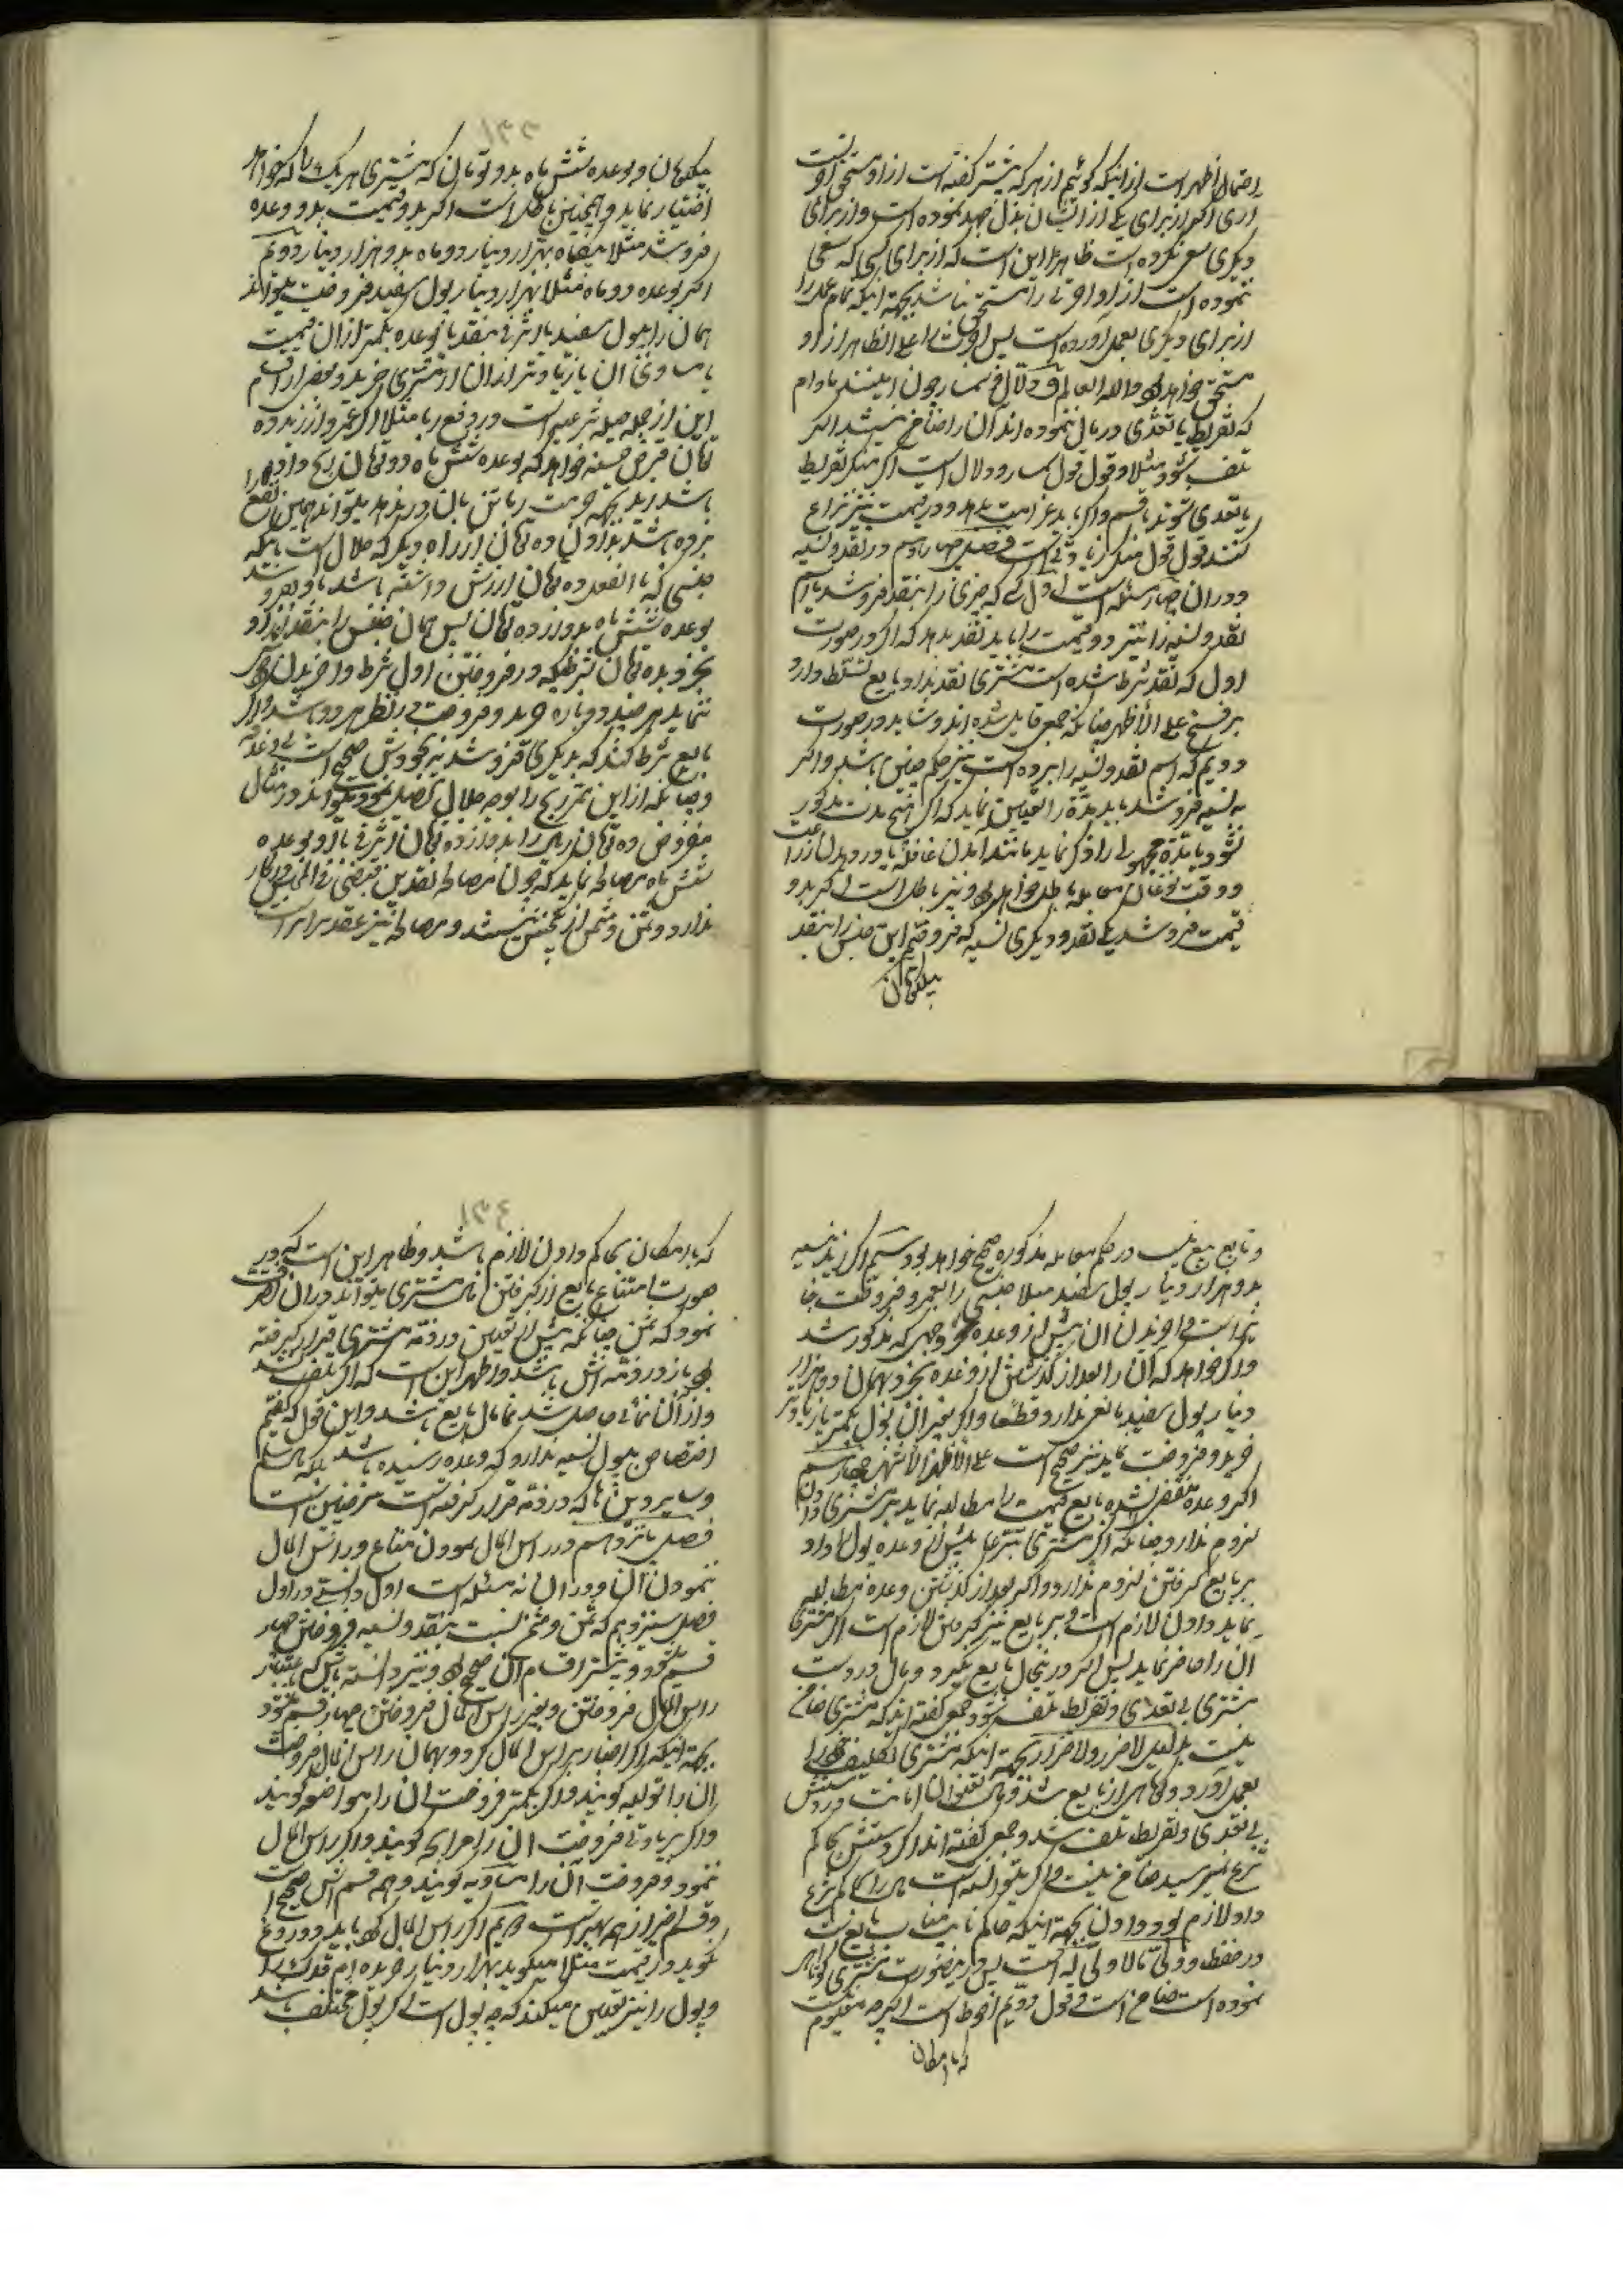 احتمال اظهر است از اینکه گوئیم از هر که بیشتر گفته است از او مستحق اجرتست
اری اگر از برای یکی از ایشان بذل جهد نموده است و از برای
دیگری سعی نکرده است ظاهرا این است که از برای کسی که سعی
نموده است از او اجرتی را مستحق باشد بجهة اینکه تمام عمل را
از برای دیگری بعمل آورده است پس اجرت را علی الظاهر از او
مستحق خواهد بود والله العالم و دلال و سمسار چون امینند مادام
که تفریط یا تعدی در مال ننموده اند آن را ضامن نیستند اگر
تلف شود مثلا و قول قول سمسار و دلال است اگر منکر تفریط
یا تعدی شوند با قسم و اگر باید غرامت بدهد و در قیمت نیز نزاع
کنند قول قول منکر زیادتی است فصل چهاردهم در نقد و نسیه
و در آن چهار مسئله است اول کسی که چیزی را بنقد فروشد یا اسم
نقد و نسیه را نبرد و قیمت را باید نقد بدهد که اگر در صورت
اول که نقد شرط شده است مشتری نقد نداد بایع تسلط دارد
بر فسخ علی الأظهر چنانکه جمعی قایل شده اند و شاید در صورت
دویم که اسم نقد و نسیه را نبرده است نیز حکم چنین باشد و اگر
به نسیه فروشد باید مدة را تعیین نماید که اگر هیچ مدت مذکور
نشود یا مدة مجهولی را ذکر نماید مانند آمدن قافله یا درویدن زراعت
و وقت خرمن معامله باطل خواهد بود و نیز باطل است اگر بدو
قیمت فروشد یکی نقد و دیگری نسیه که فروختم این جنس را بنقد
بیکتومان
۱۳۳
بیکتومان و بوعده شش ماه بدو تومان که مشتری هر یک را که خواهد
اختیار نماید و همچنین باطل است اگر بدو قیمت بدو وعده
فروشد مثلا یکماه بهزار دینار و دو ماه بدو هزار دینار دویم
اگر بوعده دو ماه مثلا بهزار دینار پول سفید فروخت میتواند
همان را بپول سفید یا اشرفی بنقد یا بوعده بکمتر از آن قیمت
یا مساوی آن یا زیادتر از آن از مشتری خرید و بعضی از اقسام
این از جمله حیله شرعیه است در دفع ربا مثلا اگر عمرو از زید ده
تومان قرض حسنه خواهد که بوعده شش ماه دو تومان ربح داده
باشد زید بجهة حرمت ربا تن بآن در ندهد میتواند همین نفع را
برده باشد بدادن ده تومان از راه دیگر که حلال است باینکه
جنسی که بالفعل ده تومان ارزش داشته باشد باو بفروشد
بوعده شش ماه بدوازده تومان پس همان جنس را بنقد از او
بخرد بده تومان بشرطیکه در فروختن اول شرط واخریدن
ننماید هر چند دوباره خرید و فروخت در نظر هر دو باشد و اگر
بایع شرط کند که بدیگری نفروشد نیز بخودش صحیح است
و چنانکه از این ممر ربح را بوجه حلال تحصیل نمود میتواند در مثال
مفروض ده تومان را بدوازده تومان اشرفی یا بوعده
شش ماه مصالحه نماید که چون در مصالحه نقدین قبض فی المجلس در کار
ندارد و ثمن و مثمن از یک جنس نیستند و مصالحه نیز عقد برابر است
و تابع بیع نیست در حکم معامله مذکوره صحیح خواهد بود سیم اگر زید به نسیه
بدو هزار دینار پول سفید مثلا جنسی را بعمرو فروخت
است واخریدن آن پیش از وعده بوجهی که مذکور شد
و اگر خواهد که آن را بعد از گذشتن از وعده بخرد بهمان دو هزار
دینار پول سفید مانعی ندارد قطعا و اگر بغیر آن پول بکمتر یا زیادتر
خرید و فروخت نماید نیز صحیح است علی الأظهر الأشهر چهارم
اگر وعده منقضی نشده بایع قیمت را مطالبه نماید بر مشتری دادن
لزوم ندارد چنانکه اگر مشتری تبرعا پیش از وعده پول را داد
بر بایع گرفتن لزوم ندارد و اگر بعد از گذشتن وعده مطالبه
نماید دادن لازم است و بر بایع نیز گرفتن لازم است اگر مشتری
آن را حاضر نماید پس اگر در اینحال بایع نگیرد و مال در دست
مشتری بی تعدی و تفریط تلف شود جمعی گفته اند که مشتری ضامن
نیست بدلیل لا ضرر و لا ضرار بجهة اینکه مشتری تکلیف خود را
بعمل آورد و کوتاهی از بایع شد و مال بعنوان امانت در دستش
بی تعدی و تفریط تلف شد و جمعی گفته اند اگر دستش بحاکم
شرع نمیرسید ضامن نیست و اگر میتوانست مال را بحاکم شرع
داد لازم بود دادن بجهة اینکه حاکم نایب مناب بایع است
در حفظ و ولی بالاولی له است پس در اینصورت مشتری کوتاهی
نموده است ضامن است و قول دویم احوط است اگر چه معلوم
که با امکان
۱۳۴
که با امکان بحاکم دادن لازم باشد و ظاهر این است که در
صورت امتناع بایع از گرفتن مال مشتری میتواند در آن تصرف
نمود که ثمن چنانکه پیش از تعیین در ذمّه مشتری قرار گرفته
بود باز در ذمّه اش باشد و اظهر این است که اگر تلف شد
و از آن نمائی حاصل شد نما مال بایع باشد و این قول که گفتیم
اختصاص بپول نسیه ندارد که وعده رسیده باشد بلکه سلم
و سایر دین ها که در ذمّه قرار گرفته است نیز چنین است
فصل پانزدهم در رأس المال نمودن متاع و رأس المال
ننمودن آن و در آن نه مسئله است اول دانستی در اول
فصل سیزدهم که ثمن و مثمن نسبت بنقد و نسیه فروختن چهار
قسم میشود و بیشتر اقسام آن صحیح بود و نیز دانسته باش که باعتبار
رأس المال فروختن و بغیر رأس المال فروختن چهار قسم میشود
بجهة اینکه اگر اخبار برأس المال کرد و بهمان رأس المال فروخت
آن را تولیه گویند و اگر بکمتر فروخت آن را مواضعه گویند
و اگر بزیادتی فروخت آن را مرابحه گویند و اگر رأس المال
ننمود و فروخت آن را مساومه گویند و همه قسم آنش صحیح است
و قسم اخیر از همه بهتر است دویم اگر رأس المال گوید باید دروغ
نگوید در قیمت مثلا میگوید بهزار دینار خریده ام
و پول را نیز تعیین میکند که چه پول است اگر پول مختلف باشد